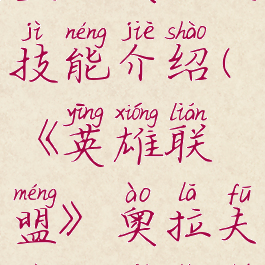 jì néng jiè shào
技能介绍(
yīng xióng lián
《英雄联
méng ào lā fū
盟》奥拉夫